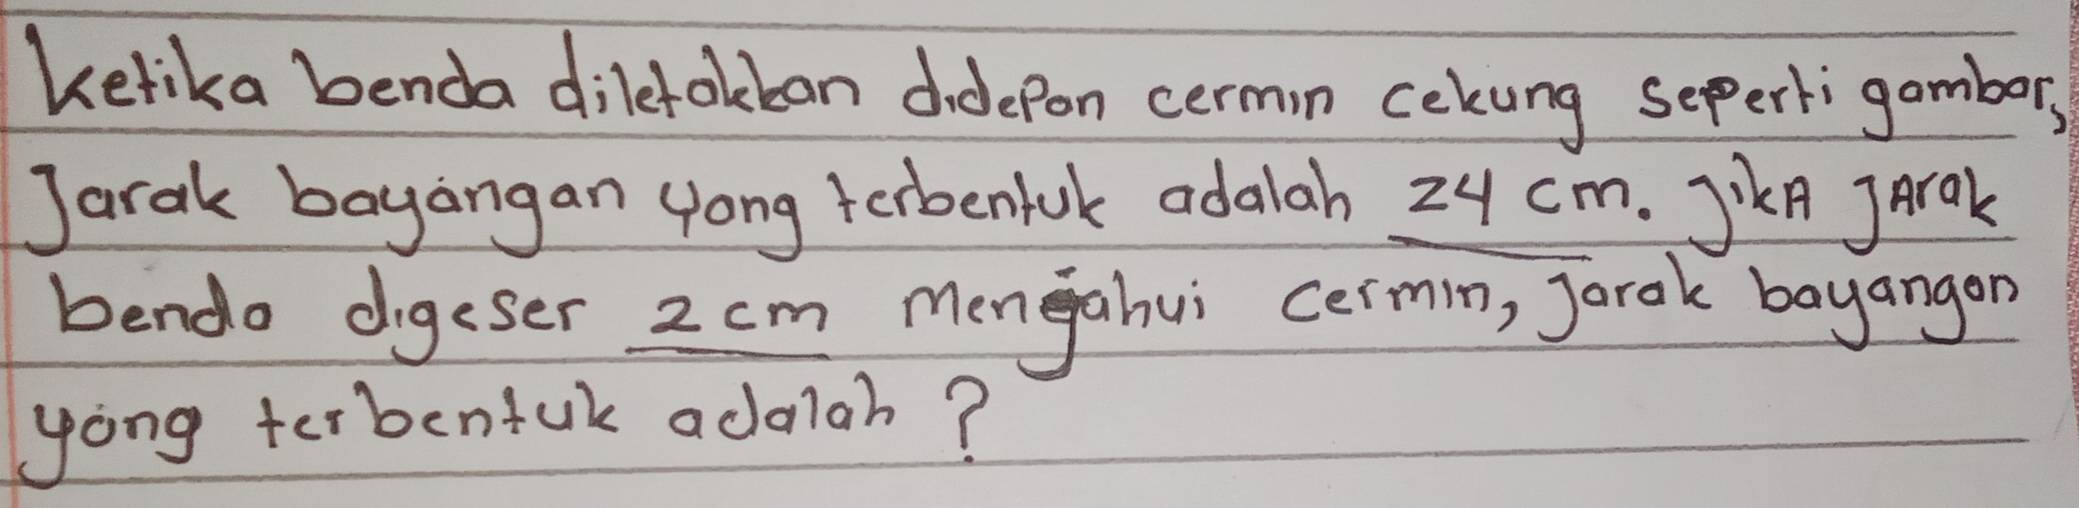 Ketika benda diletakkan didepan cermin cekung seperti gambar,
Jarak bayangan yang terbentuk adalah 24 cm. Jika Jarak
benda digeser 2 cm mengahui cermin, Jarak bayangan
yang terbentuk adalah ?